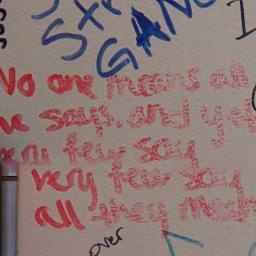 GANG
No one means all
he says, and yet
very few say
very few say
all they mean
over